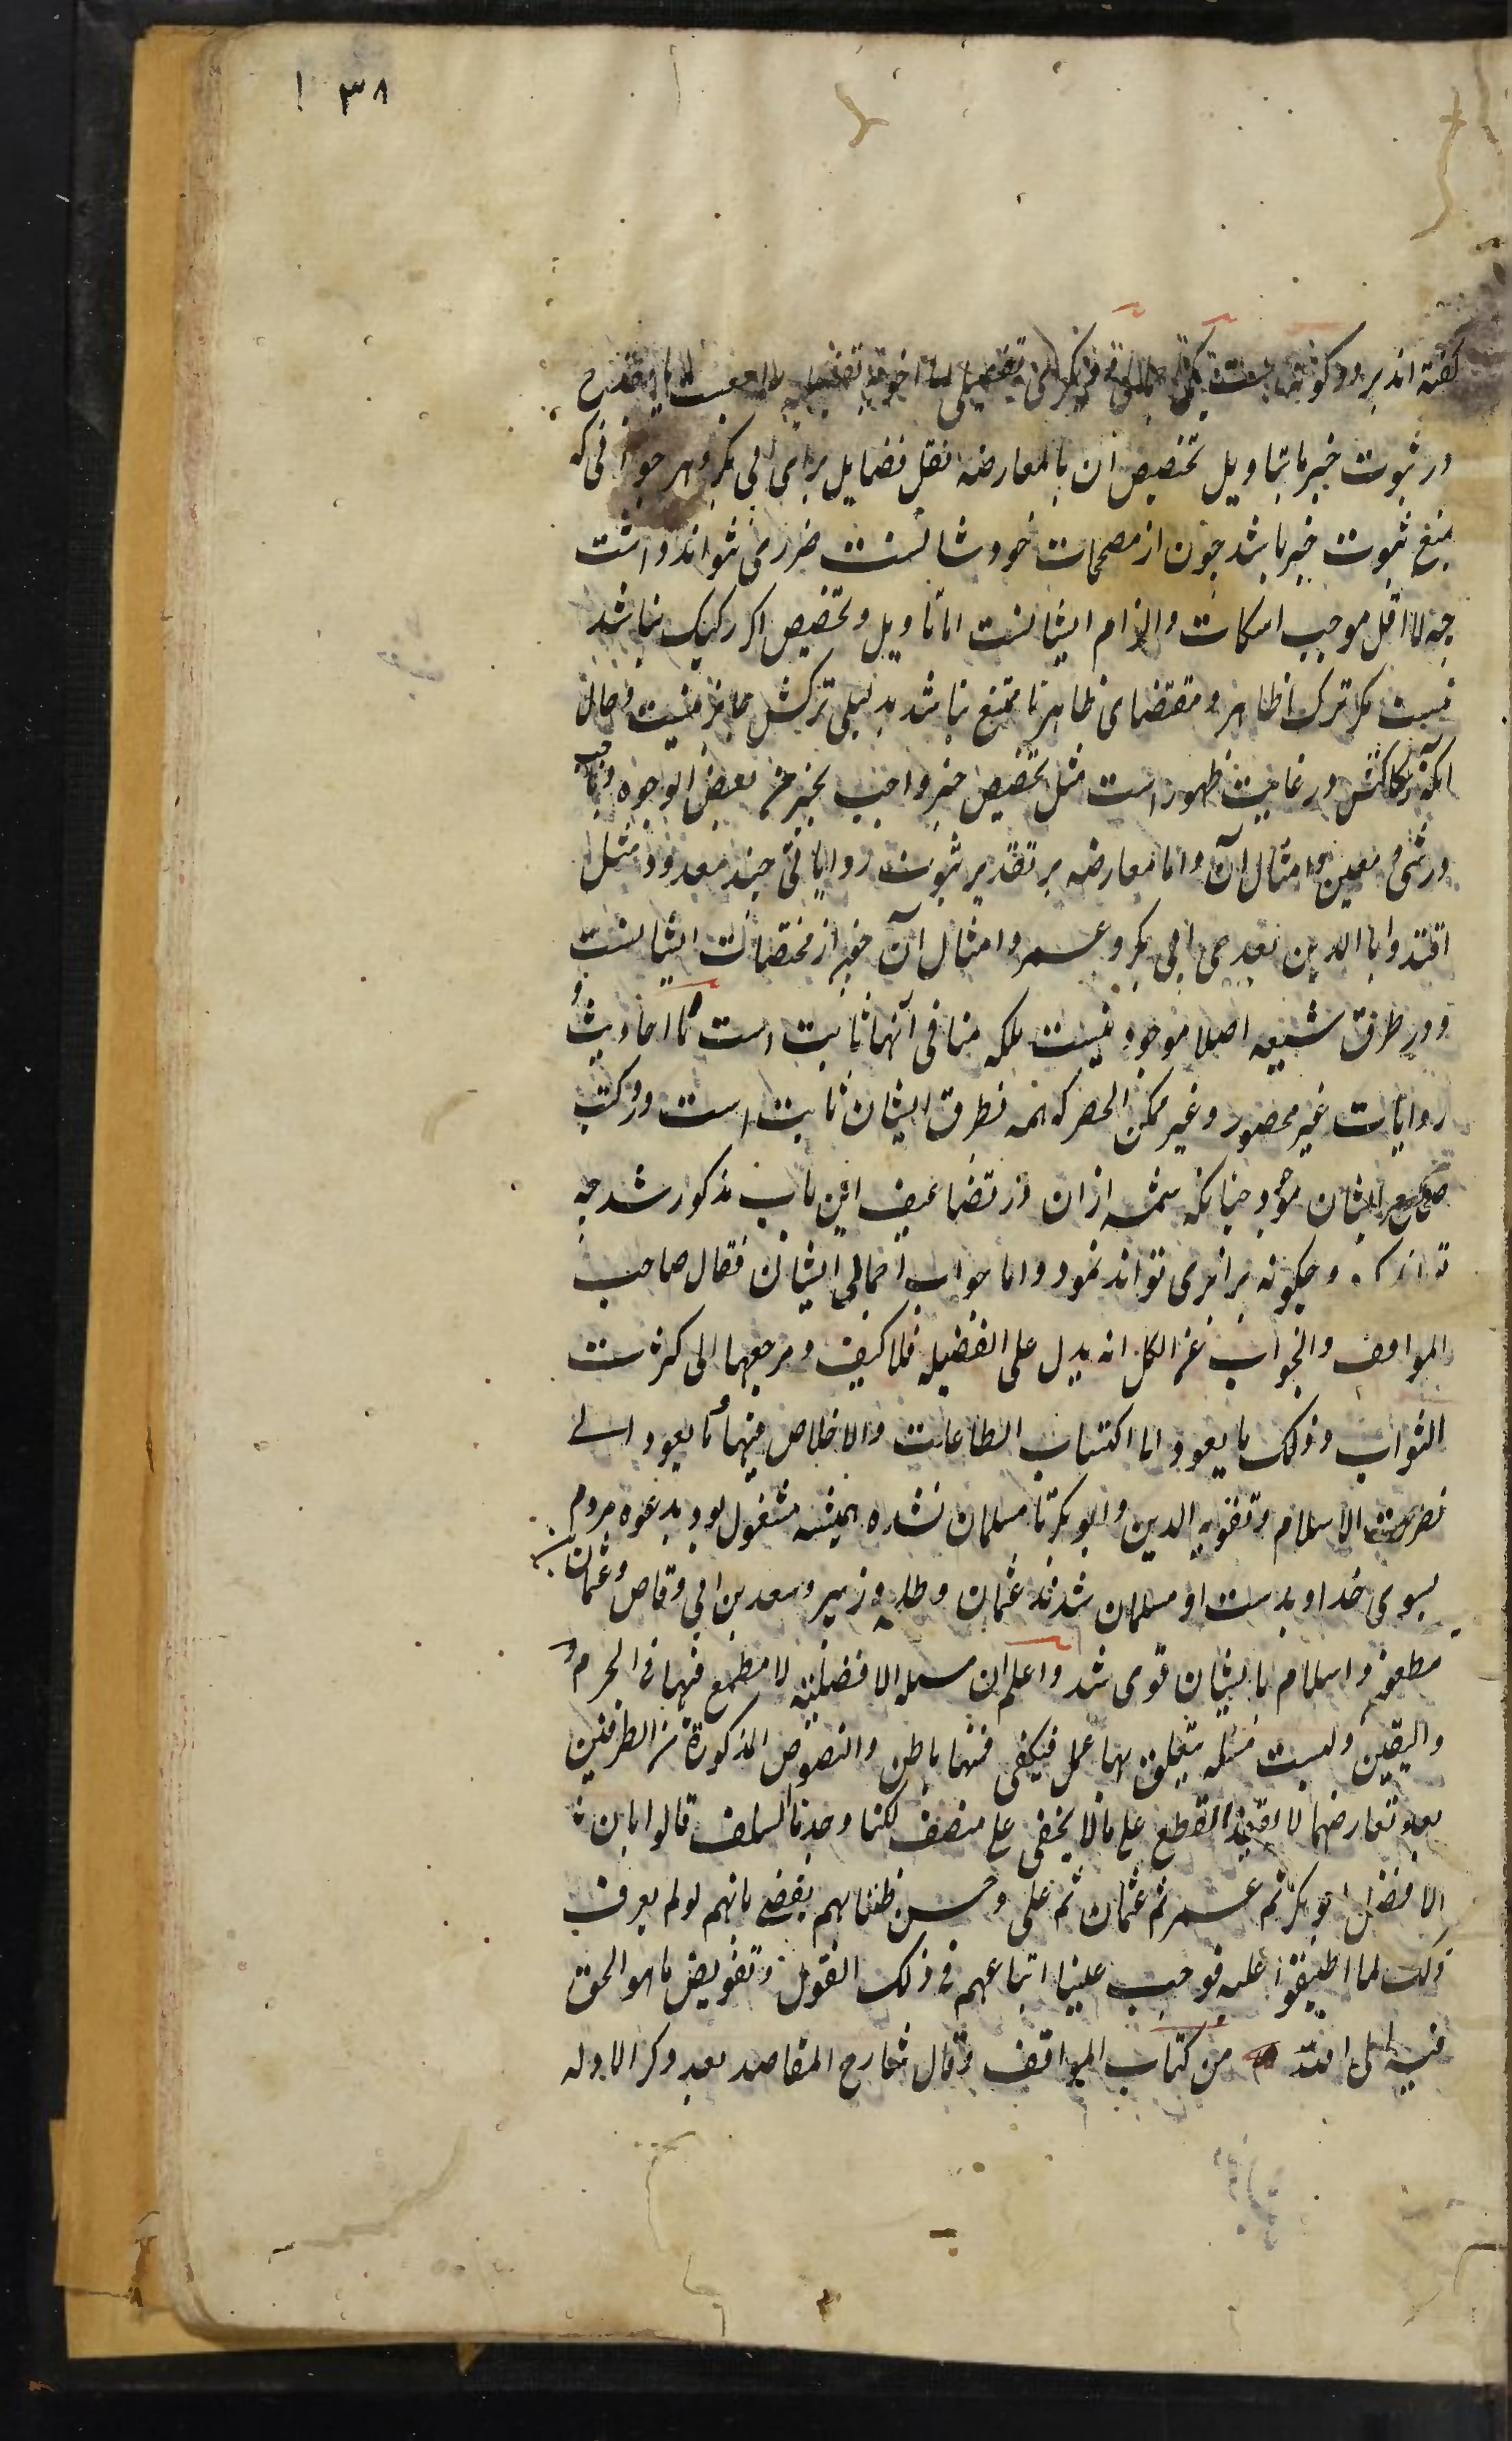 ۱۳۸
گفته اند بر دو گونه است یکی اجمالی و دیگری تفصیلی اما جواب تفصیلی یا بقدح
در ثبوت خبر یا بتاویل و تخصیص آن یا بمعارضه نقل فضایل برای ابی بکر و هر جوابی که
بمنع ثبوت خبر باشد چون از مصححات خودشانست ضرر نمی تواند داشت
چه لا اقل موجب اسکات و الزام ایشانست اما تاویل و تخصیص اگر رکیک نباشد
نیست مگر ترک ظاهر و مقتضای ظاهر تا ممتنع نباشد بدلیلی ترکش جایز نیست و حال
آنکه رکاکتش در غایت ظهور است مثل تخصیص خبر واجب بخیر من بعض الوجوه و
در شیء معین و امثال آن و اما معارضه بر تقدیر ثبوت روایاتی چند معدود مثل
اقتدوا بالذین بعدی ابی بکر و عمر و امثال آن خبر از مختصات ایشانست
و در طرق شیعه اصلا موجود نیست بلکه منافی آنها ثابت است با احادیث و
روایات غیر محصور و غیر ممکن الحصر که همه بطرق ایشان ثابت است و در کتب
صحیح ایشان موجود چنانکه شمه از آن در تضاعیف این باب مذکور شد چه
تدارک و چگونه برابری تواند نمود و اما جواب اجمالی ایشان فقال صاحب
المواقف والجواب عن الکل انه یدل علی الفضیله فلا کیف و مرجعها الی کثرت
الثواب و ذلک ما یعود اما اکتساب الطاعات والاخلاص فیها و ما یعود الی
نصرت الاسلام و تقویه الدین و ابوبکر تا مسلمان نشده همیشه مشغول بود بدعوه مردم
بسوی خدا و بدست او مسلمان شدند عثمان و طلحه و زبیر و سعد بن ابی وقاص و عثمان بن
مطعون و اسلام بایشان قوی شد و اعلم ان مسئله الافضلیه لا مطمع فیها فی الجزم و
والیقین و لیست مسئله یتعلق بها عمل فیکفی فیها بالظن والنصوص المذکورة من الطرفین
بعد تعارضها لا تفید القطع علی ما لا یخفی علی منصف لکنا وجدنا السلف قالوا بان
الافضل ابوبکر ثم عمر ثم عثمان ثم علی و حسن ظننا بهم یقضی بانهم لو لم یعرف
ذلک لما اطبقوا علیه فوجب علینا اتباعهم فی ذلک القول و تفویض ما هو الحق
فیه الی الله من کتاب المواقف و قال شارح المقاصد بعد ذکر الادله